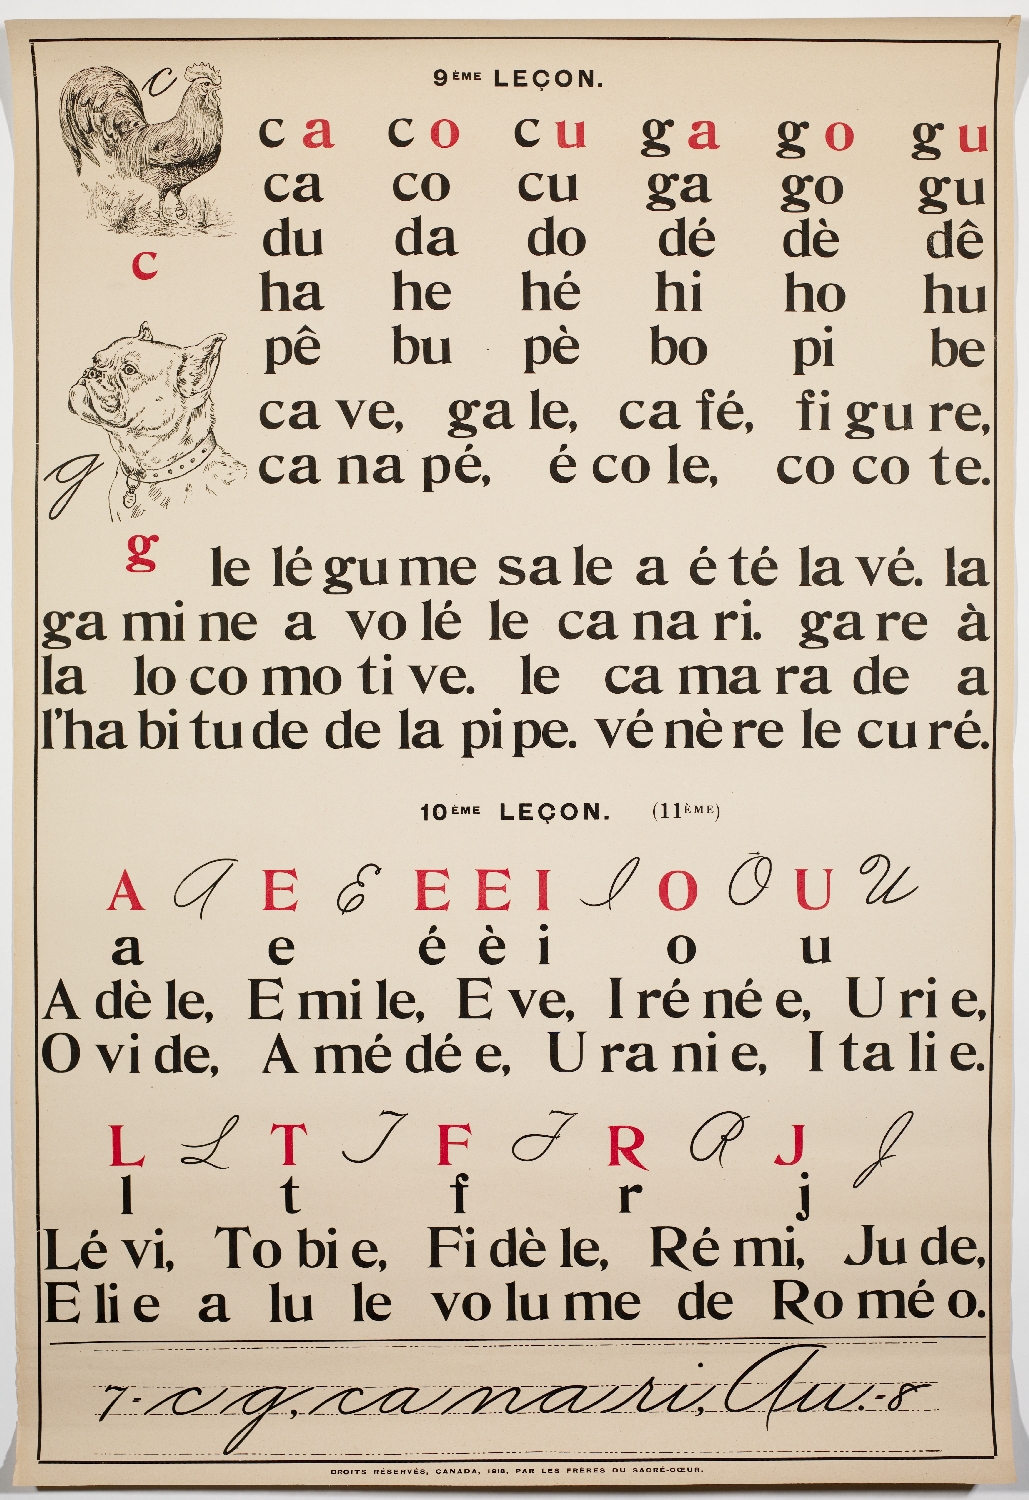 9ÈME LEÇON.
c
c a c o c u g a g o g u
ca co cu ga go gu
du da do dé dè dê
c
ha he hé hi ho hu
pê bu pè bo pi be
ca ve, ga le, ca fé, fi gu re,
g
ca na pé, é co le, co co te.
g
le lé gu me sa le a é té la vé. la
ga mi ne a vo lé le ca na ri. ga re à
la lo co mo ti ve. le ca ma ra de a
l'ha bi tu de de la pi pe. vé nè re le cu ré.
10ÈME LEÇON. (11ÈME)
A A E E E E I I O O U U
a e é è i o u
A dè le, E mi le, E ve, I ré né e, U ri e,
O vi de, A mé dé e, U ra ni e, I ta li e.
L L T T F F R R J J
l t f r j
Lé vi, To bi e, Fi dè le, Ré mi, Ju de,
E li e a lu le vo lu me de Ro mé o.
7- c g, ca na ri, Au.-8
DROITS RÉSERVÉS, CANADA, 1918, PAR LES FRÈRES DU SACRÉ-CŒUR.